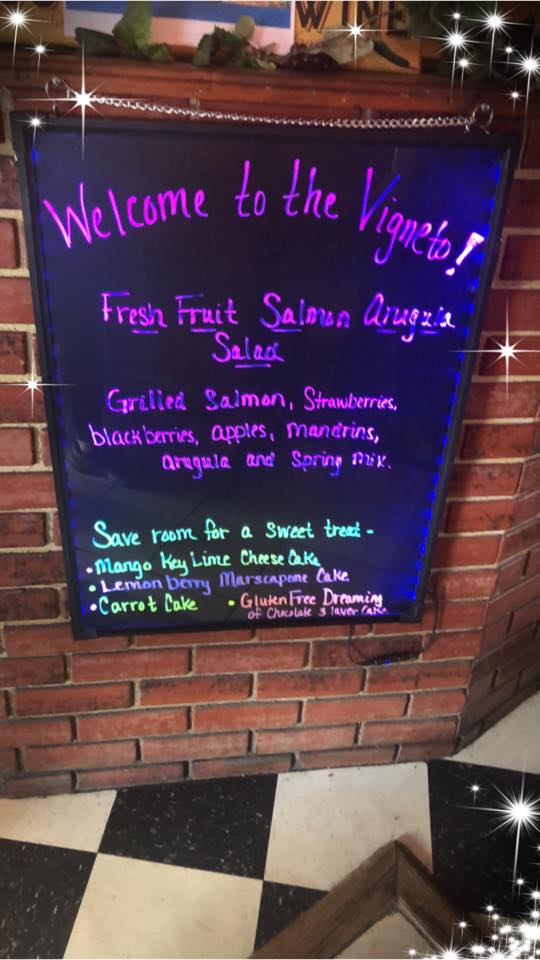 WINE
Welcome to the Vigneto!
Fresh Fruit Salmon Arugula
Salad
Grilled Salmon, Strawberries,
blackberries, apples, mandrins,
arugula and Spring mix.
Save room for a sweet treat-
•Mango Key Lime Cheese Cake
•Lemon berry Marscapone Cake
•Carrot Cake •Gluten Free Dreaming
of Chocolate 3 layer Cake